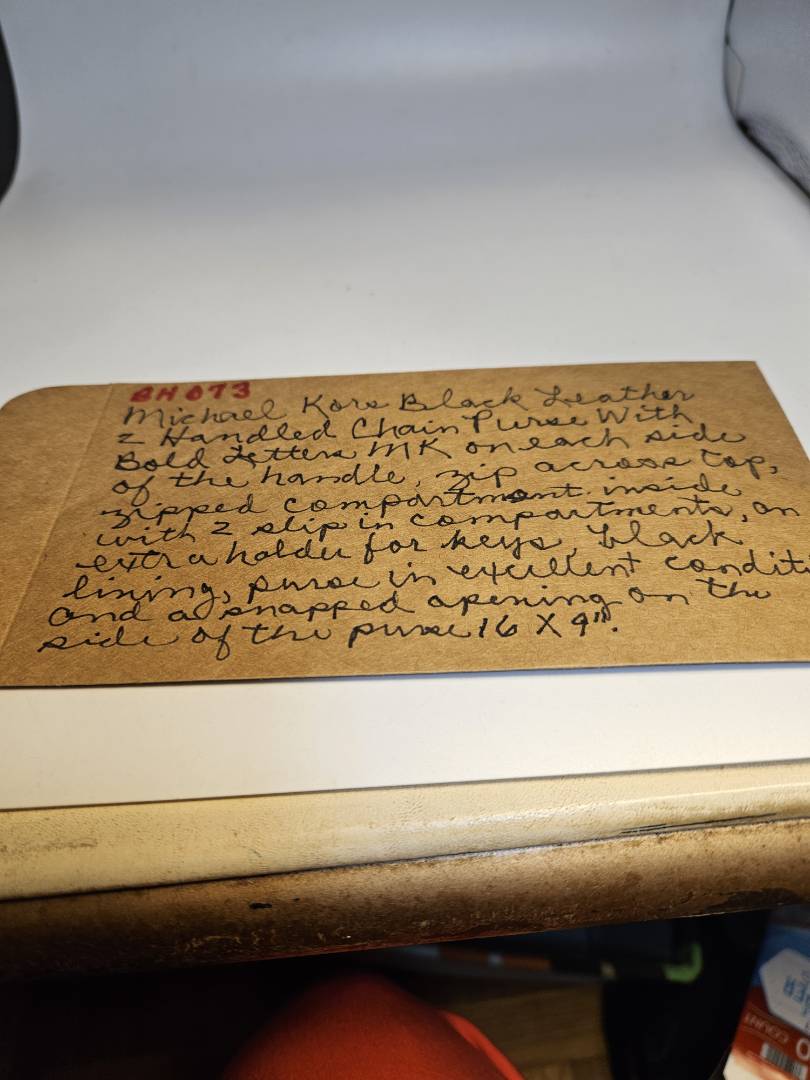 BH073
Michael Kors Black Leather
2 Handled Chain Purse With
Bold Letters MK on each side
of the handle, zip across top,
zipped compartment inside
with 2 slip in compartments, an
extra holder for keys, black
lining, purse in excellent conditi
and a snapped opening on the
side of the purse 16 X 9in.
COUNT